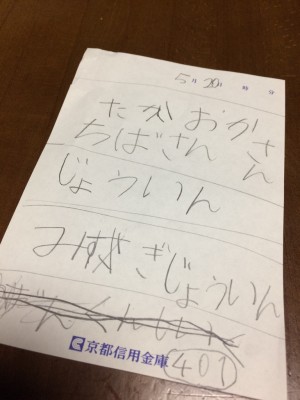 5月20日 時 分
たかおかさん
ちばさん
じょういん
みずぎじょういん
京都信用金庫
401